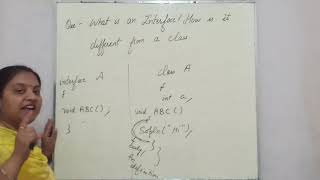 Que - What is an Interface? How is it
different from a class
interface A
{
void ABC();
}
class A
{
int a;
void ABC()
{
Sopln("Hi");
}
}
body/
definition